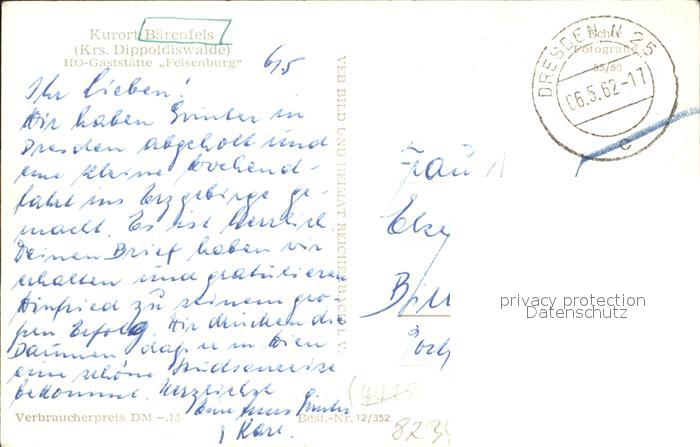 Kurort Bärenfels
(Krs. Dippoldiswalde)
HO-Gaststätte „Felsenburg"
6/5
Ihr Lieben!
Wir haben Günter in
Dresden abgeholt und
eine kleine Wochend-
fahrt ins Erzgebirge ge-
macht. Es ist herrlich.
Deinen Brief haben wir
erhalten und gratulieren
Winfried zu seinem gro-
ßen Erfolg. Wir drücken die
Daumen daß er in Wien
eine schöne
bekommt. Herzlichst
Günter
Karl.
Verbraucherpreis DM –.15
Best.-Nr. 12/352
VEB BILD UND HEIMAT REICHENBACH I. V.
Echte
Fotografie
DRESDEN N 25
06.5.62-17
c
Frau
privacy protection
Datenschutz